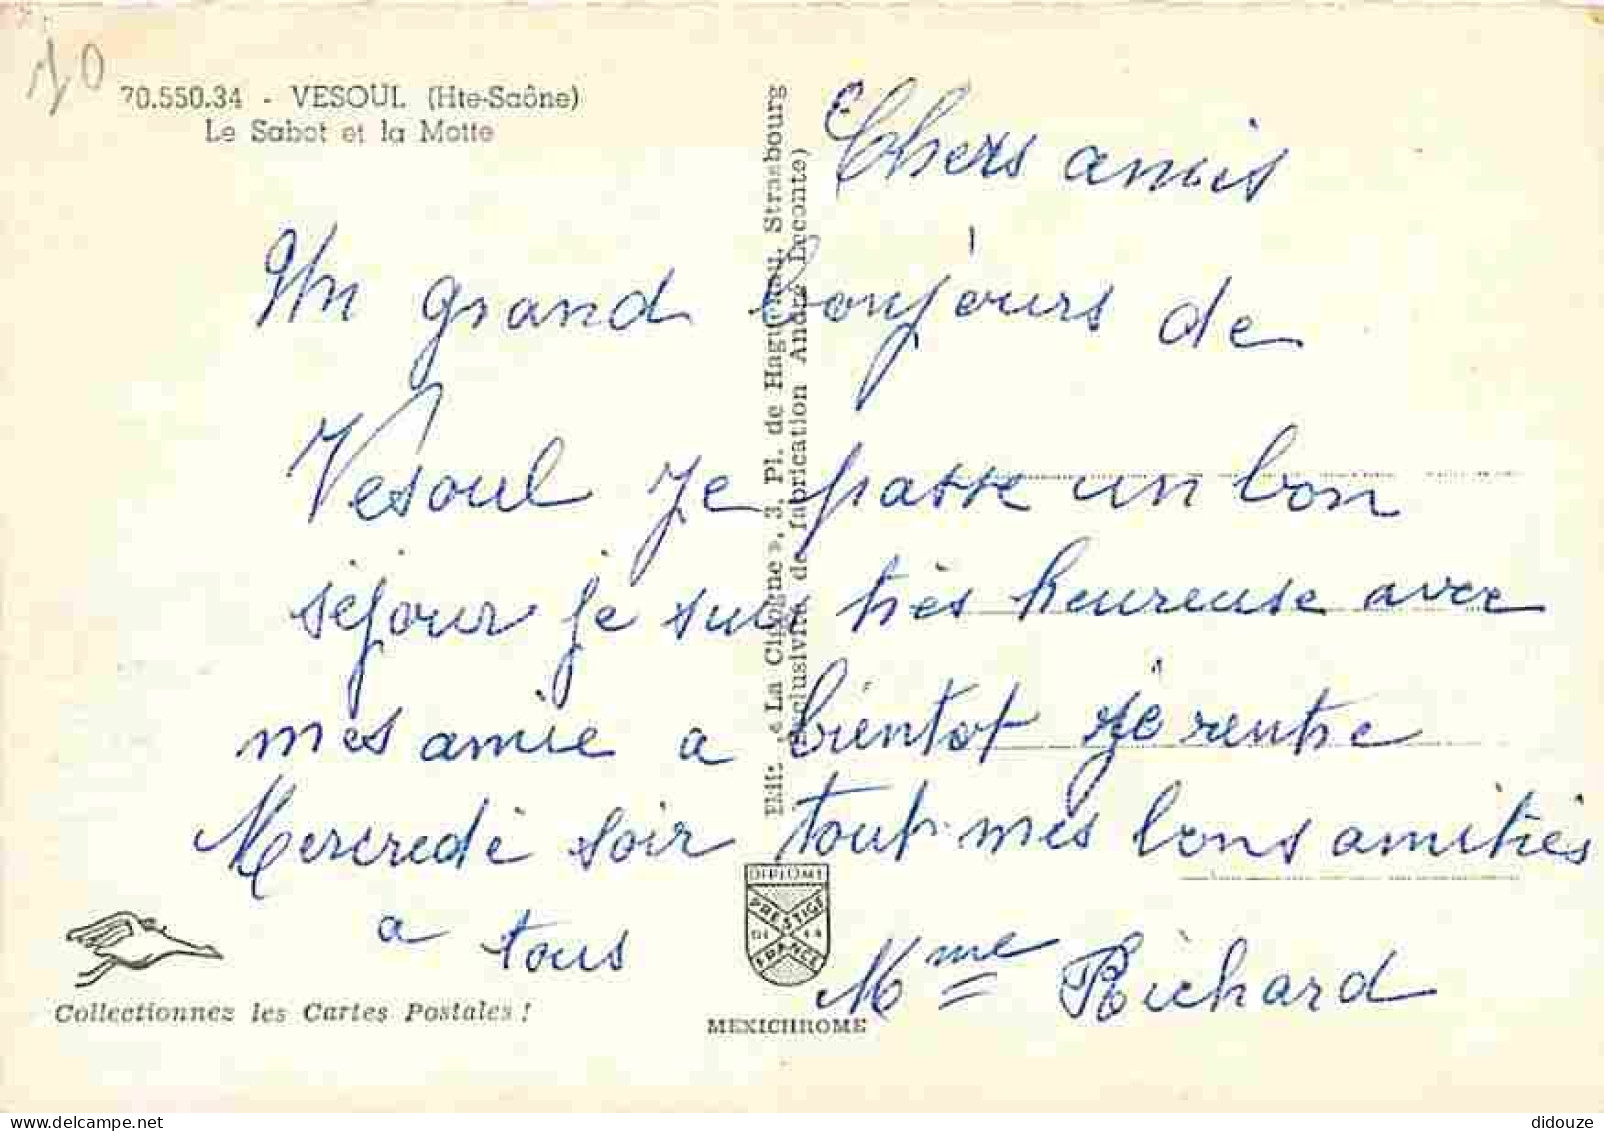 70
70.550.34 - VESOUL (Hte-Saône)
Le Sabot et la Motte
Chers amis
Un grand bonjours de
Vesoul je passe un bon
séjour je suis très heureuse avec
mes amie a bientot je rentre
Mercredi soir tout mes bons amitiés
a tous
Mme Richard
Edit. « La Cigogne », 3, Pl. de Haguenau, Strasbourg
(exclusivité de fabrication André Leconte)
DIPLOME
PRESTIGE
DE LA
FRANCE
Collectionnez les Cartes Postales !
MEXICHROME
didouze